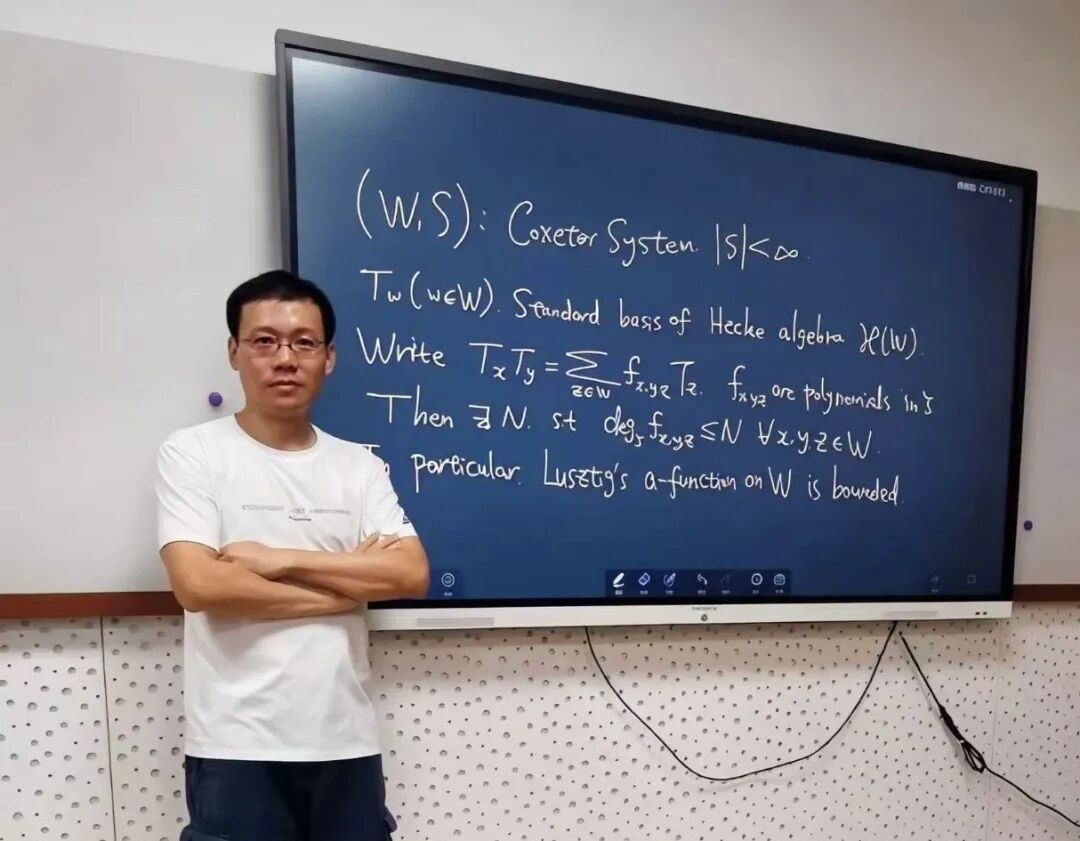 (W,S): Coxeter System. |S|<∞.
T_w (w∈W). Standard basis of Hecke algebra ℋ(W).
Write T_x T_y = ∑_{z∈W} f_{x,y,z} T_z. f_{x,y,z} are polynomials in ξ
Then ∃ N. s.t deg_ξ f_{x,y,z} ≤ N ∀x,y,z∈W.
particular. Lusztig's a-function on W is bounded.